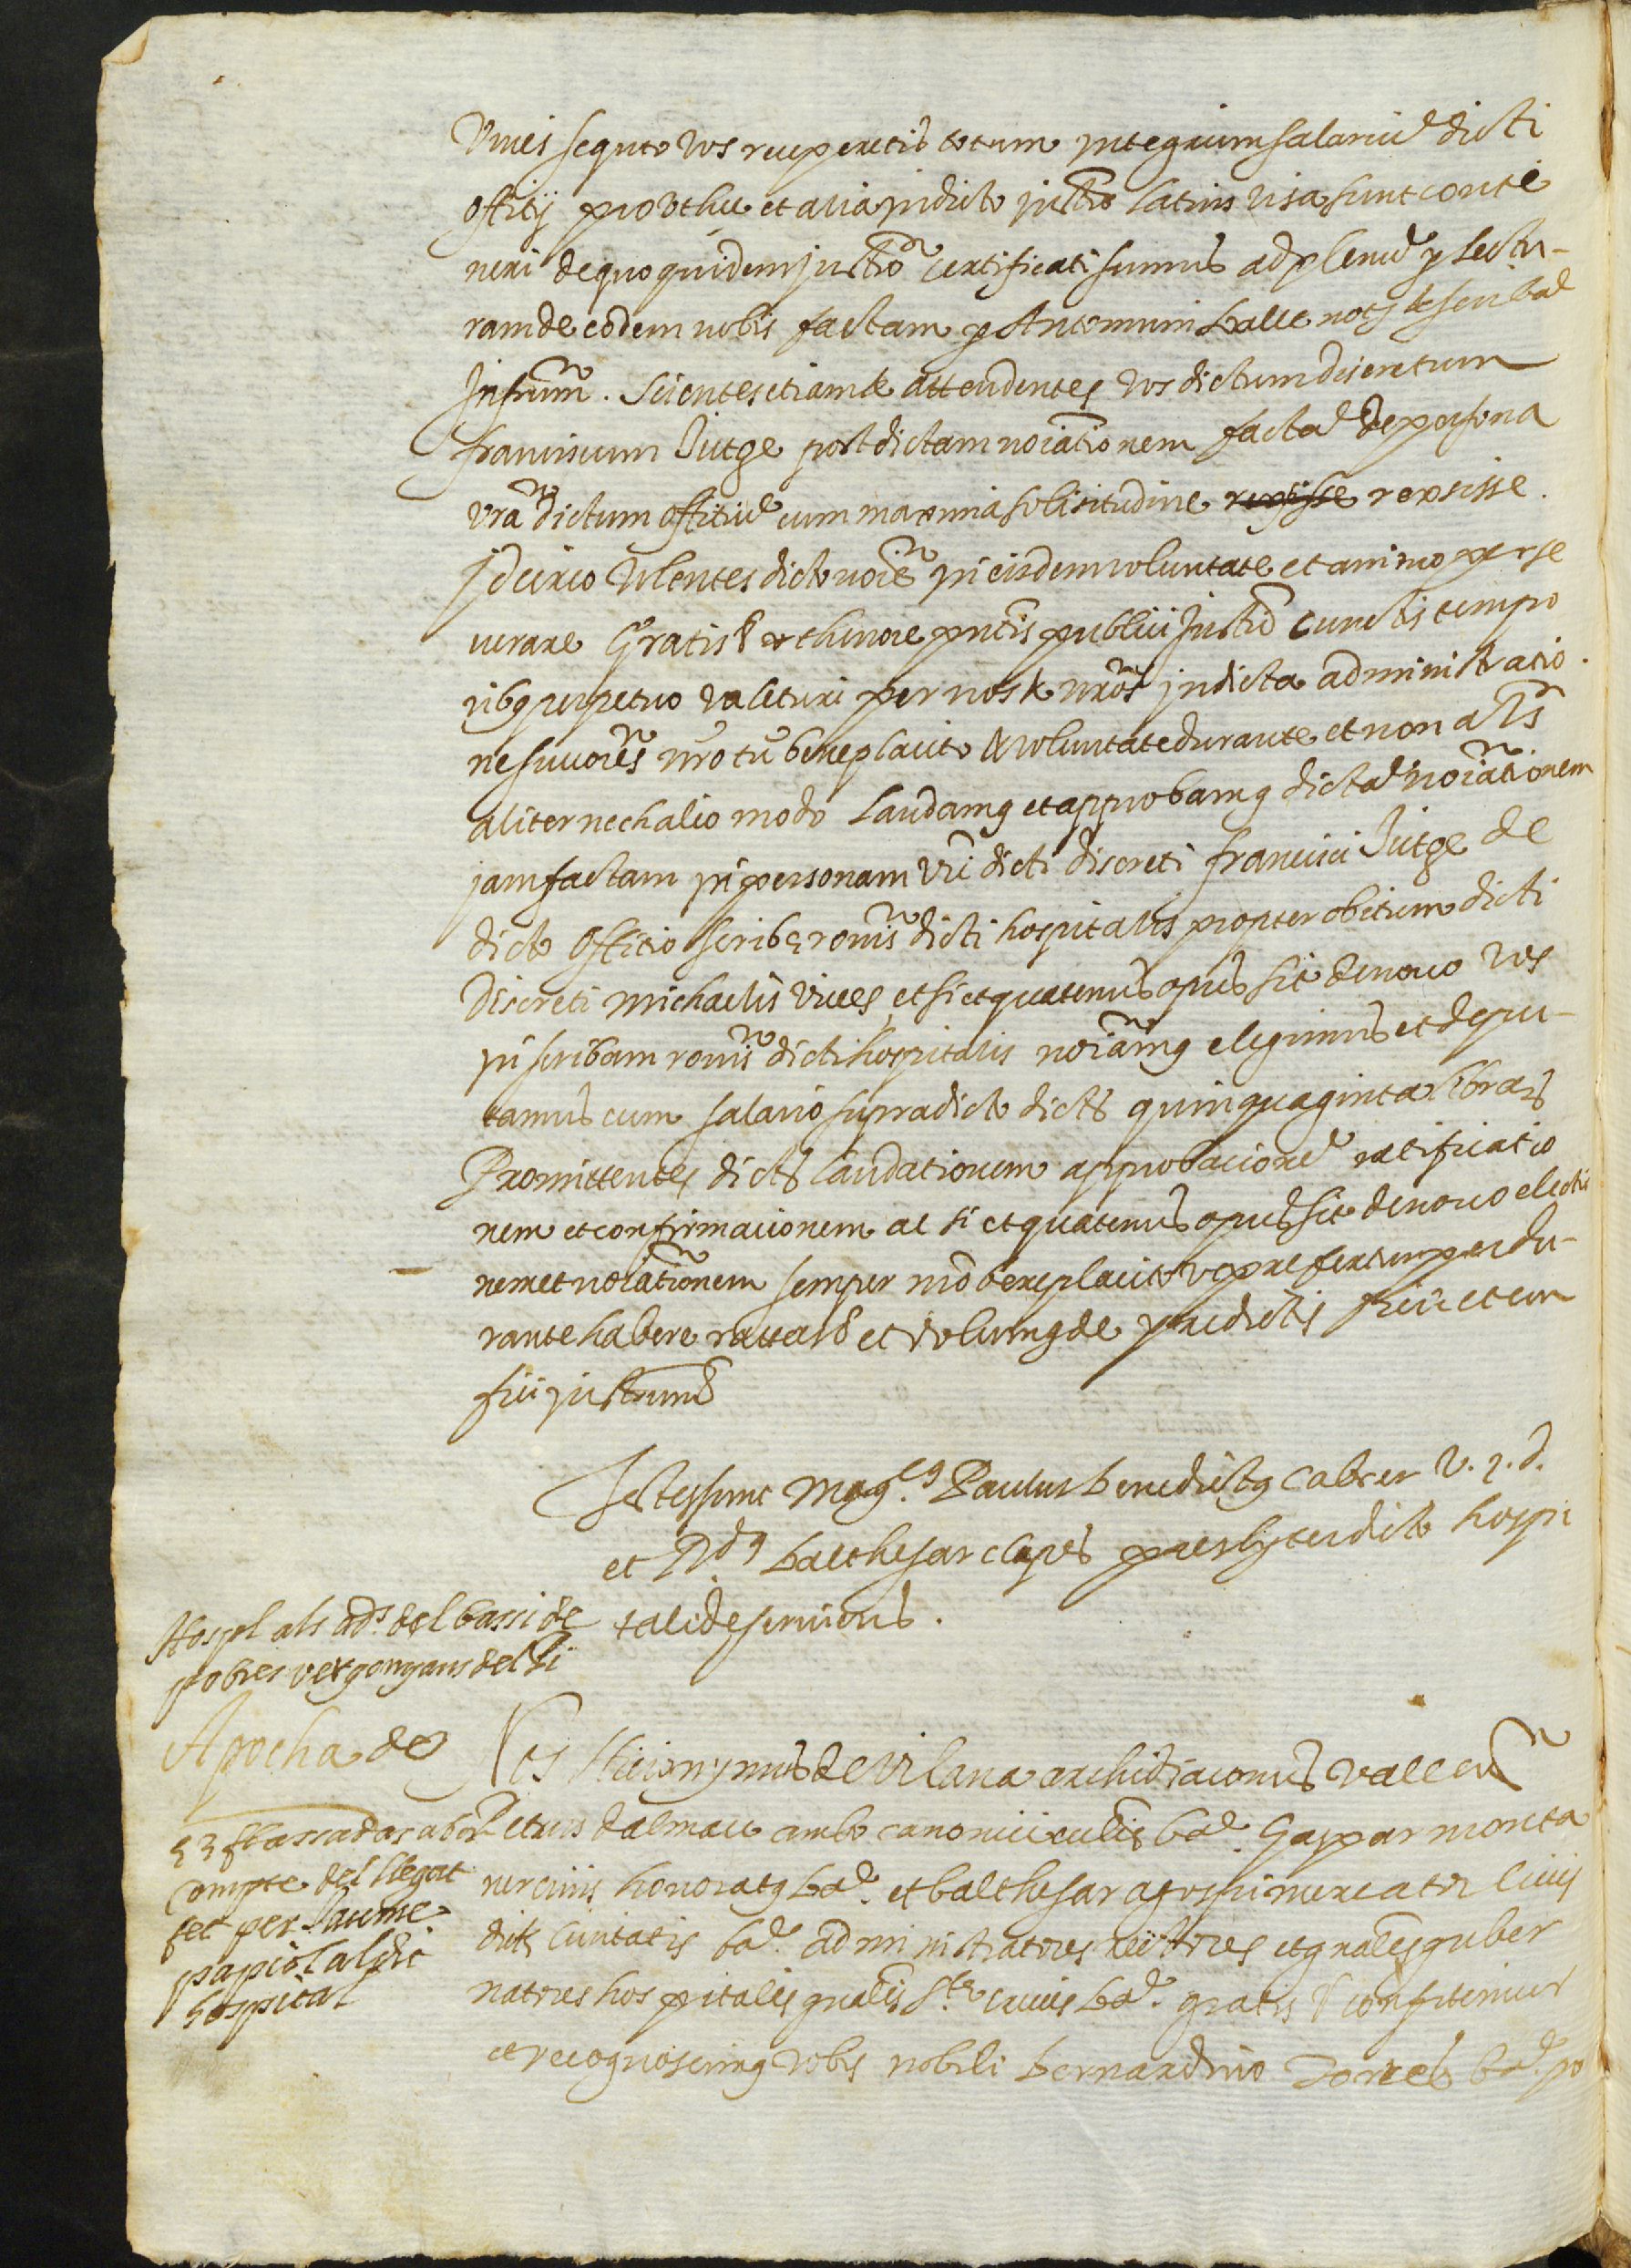 Vives sequto vos recuperetis totum integrum salariu dicti
offitij prout hec et alia in dicto instro latius visa sunt conti
neri de quo quidem instro certificati sumus ad plenu p lectu-
ram de eodem nobis factam p Antonium batle notj & scriba
infrum. Scientes etiam & attendentes vos dictum discretum
franciscum Jutge post dictam noiationem facta de persona
vra dictum offitiu cum maxima solisitudine rexsisse rexsisse.
Idcirco volentes dicto noie in eisdem voluntate et animo perse
verare Gratis & thenore pntis publici instri cunctis tempo
ribq perpetuo valeturi per nos & nros in dicta administratio
ne succores nro tn beneplacito & voluntate durante et non als
aliter nec alio modo Laudamq et approbamq dicta noiationem
jam factam in personam vri dicti discreti francisci Jutge de
dicto offitio scribe ronis dicti hospitalis propter obitum dicti
Discreti michaelis vives et si et quatenus opus sit denovo vos
in scribam ronis dicti hospitalis noiamq elegimus et depu-
tamus cum salario supradicto dicts quinquaginta librars
Promittentes dicts laudationem approbacione ratificatio
nem et confirmacionem ac si et quatenus opus sit denovo electio
nem et noiationem semper nro beneplacito ut prefertur perdu-
rante habere rattas & et volumq de predictis fieri et cun
fici instrum
Testes sunt Magcq Paulus benedictq Cabrer v.j.d.
et Rdq balthesar clapes presbyter dicto hospi
tali deserviens.
Hospl als ads del bassi de
pobres vergonyans del Pi
Apocha de
53 ₶ bassadas a bon
compte del llegat
fet per Jaume
papiol al dit
hospital
Nos Hieronymus de Vilana archidiaconus vallen
Petrus dalmau ambo canonici eccliae bae. Gaspar monta
ner civis honoratq bae. et balthesar agosti mercator civis
dicte civitatis bae. administratores rectores et gnales guber
natores hospitalis gnalis Ste crucis bae. gratis & confitemur
et recognoscimq vobis nobili bernardino Torrelles bae. po